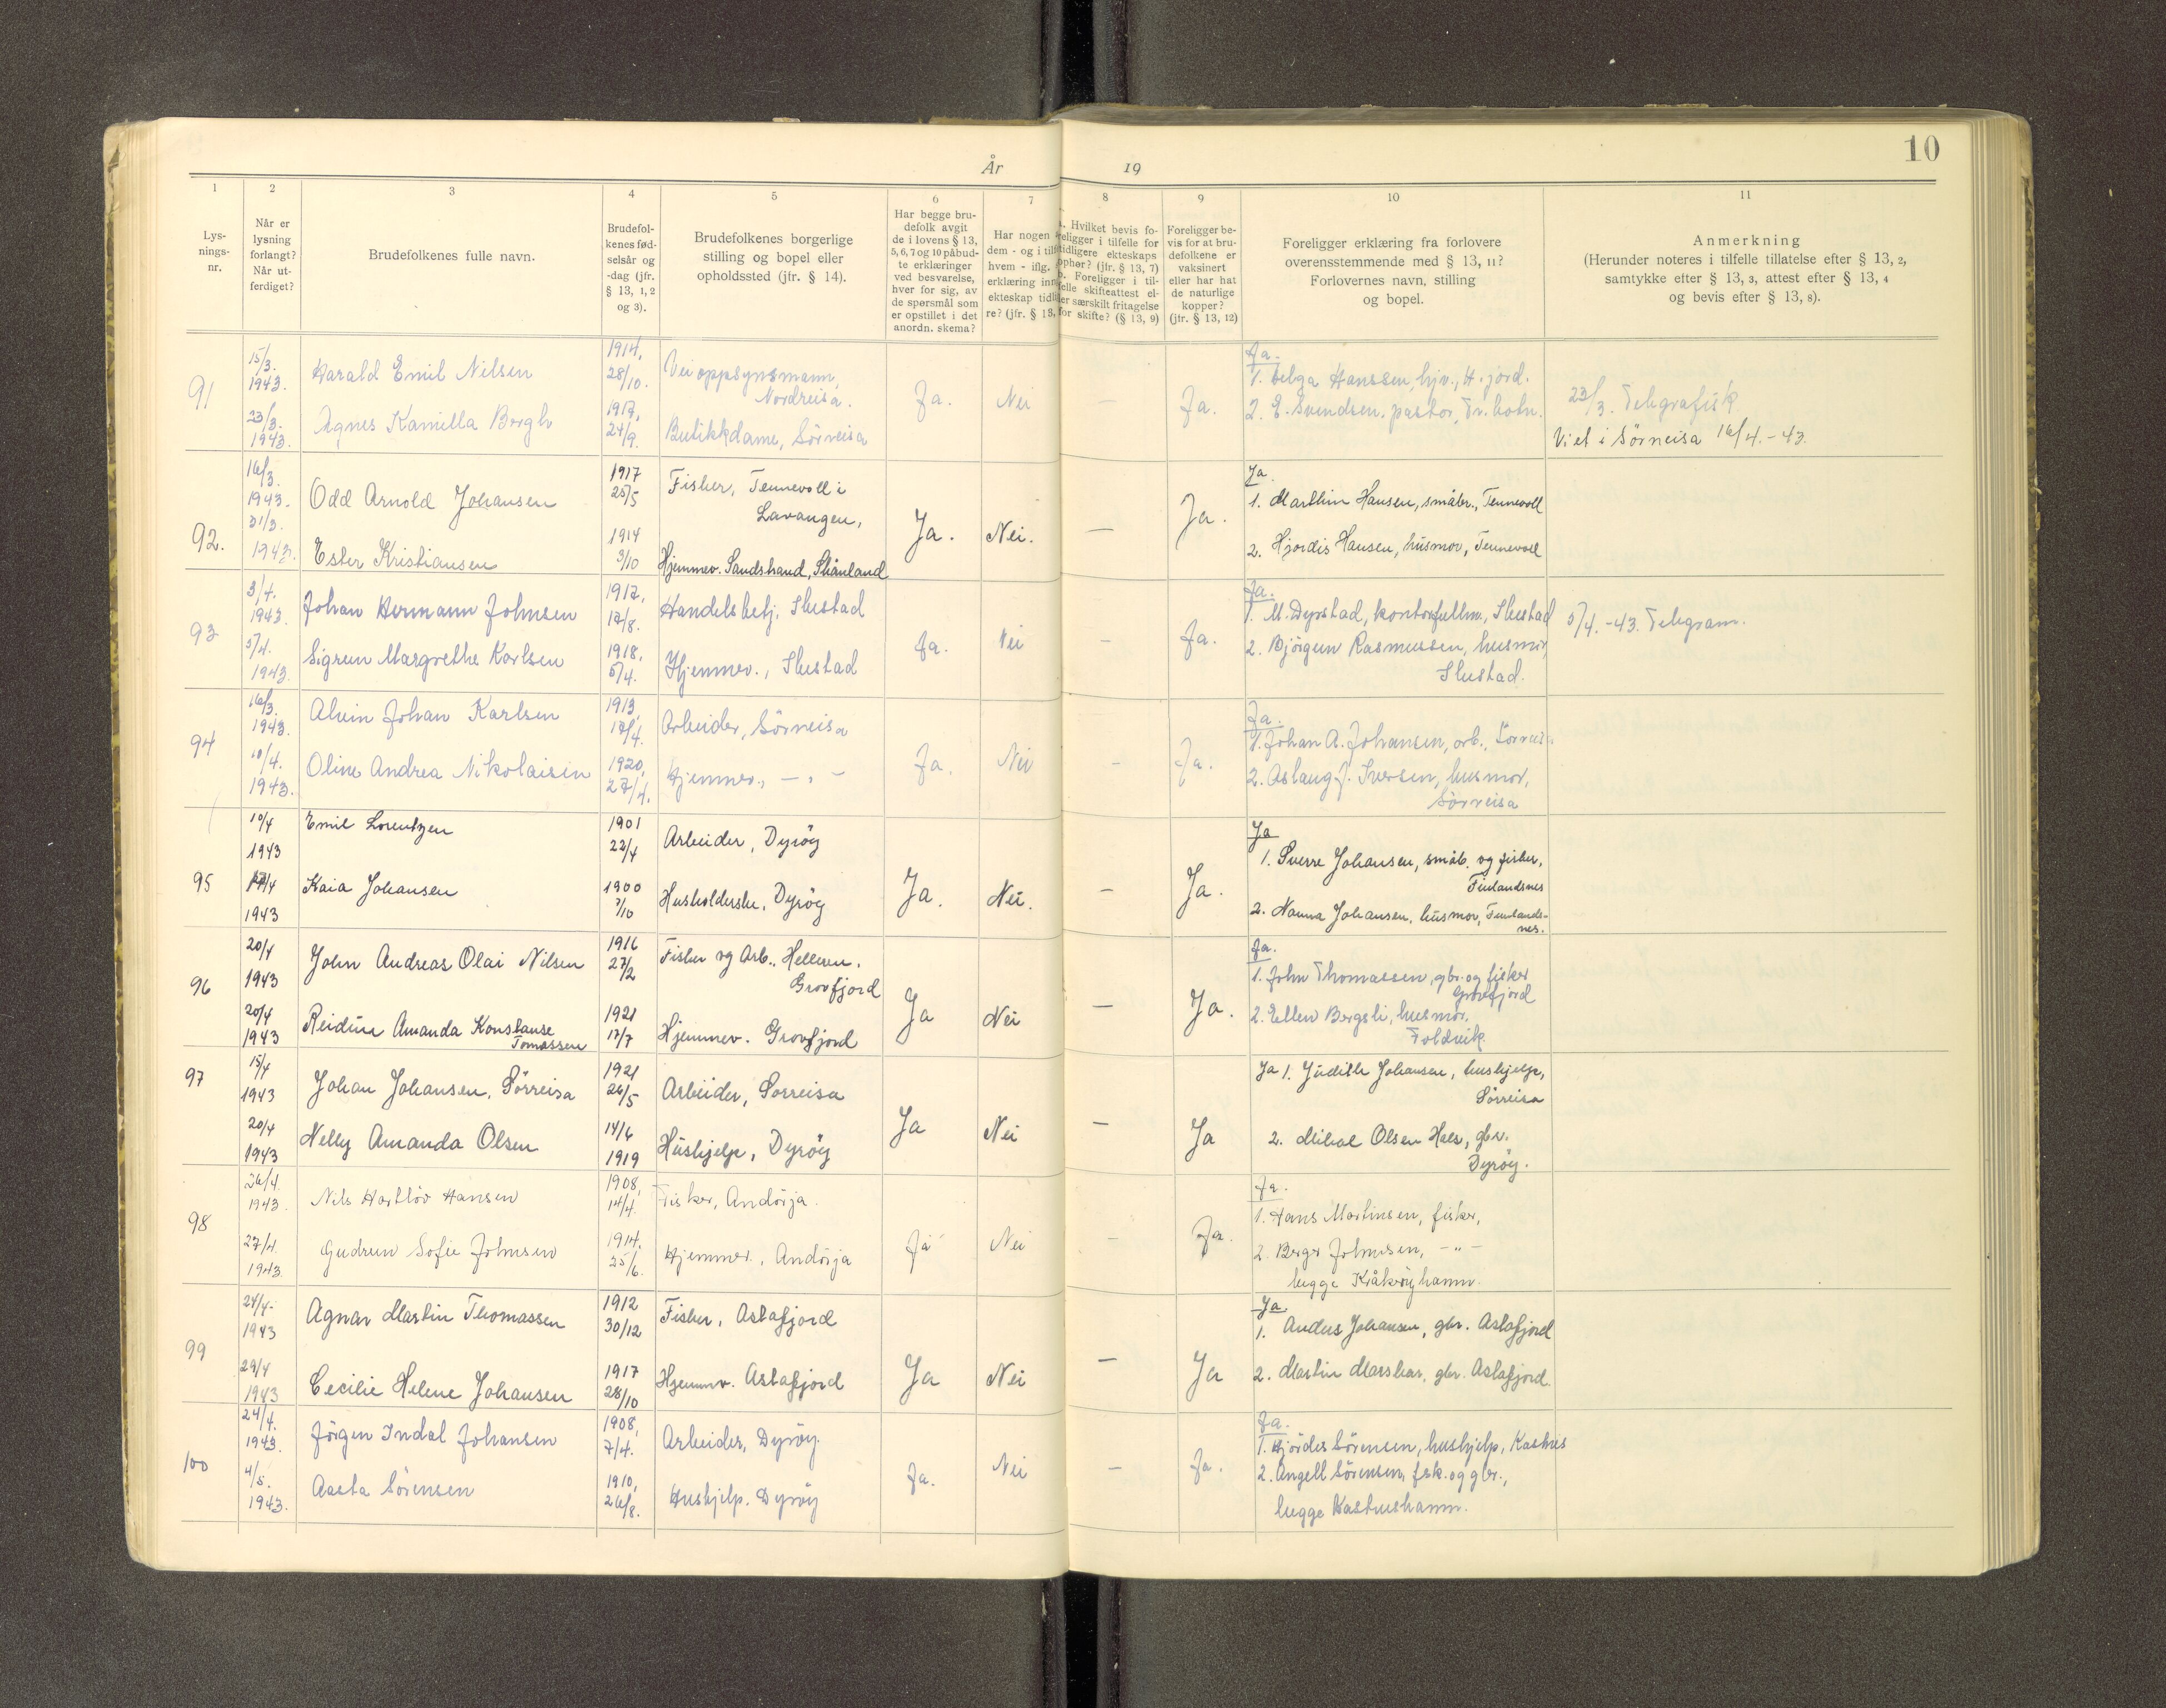 10
År 19
1 2 3 4 5 6 7 8 9 10 11
Lys-
nings-
nr.
Når er
lysning
forlangt?
Når ut-
ferdiget?
Brudefolkenes fulle navn.
Brudefol-
kenes fød-
selsår og
-dag (jfr.
§ 13, 1, 2
og 3).
Brudefolkenes borgerlige
stilling og bopel eller
opholdssted (jfr. § 14).
Har begge bru-
defolk avgit
de i lovens § 13,
5, 6, 7 og 10 påbud-
te erklæringer
ved besvarelse,
hver for sig, av
de spørsmål som
er opstillet i det
anordn. skema?
Har nogen
dem - og i tilf
hvem - iflg.
erklæring inn
ekteskap tidli
re? (jfr. § 13,
. Hvilket bevis fo-
religger i tilfelle for
tidligere ekteskaps
ophør? (jfr. § 13, 7)
b. Foreligger i til-
felle skifteattest el-
ler særskilt fritagelse
for skifte? (§ 13, 9)
Foreligger be-
vis for at bru-
defolkene er
vaksinert
eller har hat
de naturlige
kopper?
(jfr. § 13, 12)
Foreligger erklæring fra forlovere
overensstemmende med § 13, 11?
Forlovernes navn, stilling
og bopel.
Anmerkning
(Herunder noteres i tilfelle tillatelse efter § 13, 2,
samtykke efter § 13, 3, attest efter § 13, 4
og bevis efter § 13, 8).
91
15/3.
1943.
23/3.
1943.
Harald Emil Nilsen
Agnes Kamilla Bergh
1914,
28/10.
1917,
24/9.
Veioppsynsmann,
Nordreisa.
Butikkdame, Sörreisa
Ja. Nei — Ja.
Ja.
1. Helga Hanssen, hjv., H.jord.
2. E. Svendsen. pastor, Tr.botn.
23/3. Telegrafisk
Viet i Sörreisa 16/4.-43.
92.
16/3.
1943.
31/3.
1943.
Odd Arnold Johansen
Ester Kristiansen
1917
25/5
1914
3/10
Fisker, Tennevoll i
Lavangen,
Hjemmev. Sandstrand, Skånland
Ja. Nei. — Ja.
Ja
1. Marthin Hansen, småbr., Tennevoll
2. Hjordis Hansen, husmor, Tennevoll
93
3/4.
1943.
5/4.
1943.
Johan Hermann Johnsen
Sigrun Margrethe Karlsen
1917,
17/8.
1918,
5/4.
Handelsbetj. Slustad
Hjemmev., Slustad
Ja. Nei — Ja.
Ja.
1. M. Dyrstad, kontorfullm., Slustad
2. Björgun Rasmussen, husmor,
Slustad.
5/4.-43. Telegram.
94
16/3.
1943.
10/4.
1943.
Alvin Johan Karlsen
Oline Andrea Nikolaisen
1913,
17/4.
1920,
27/4.
Arbeider, Sörreisa
Hjemmev., — " —
Ja. Nei — Ja.
Ja.
1. Johan A. Johansen, arb., Sörreis.
2. Aslaug J. Iversen, husmor,
Sörreisa
95
10/4
1943
17/4
1943
Emil Lorentzen
Kaia Johansen
1901
22/4
1900
7/10
Arbeider, Dyröy
Husholderske, Dyröy
Ja. Nei. — Ja.
Ja
1. Sverre Johansen, småb. og fisker,
Finlandsnes
2. Nanna Johansen, husmor, Finnlands-
nes.
96
20/4
1943
20/4
1943
John Andreas Olai Nilsen
Reidun Amanda Konstanse
Tomassen
1916
27/2
1921
17/7
Fisker og Arb., Helleren.
Grovfjord
Hjemmev. Grovfjord
Ja Nei — Ja.
Ja.
1. John Thomassen, gbr. og fisker
Grovfjord
2. Ellen Bergsli, husmor.
Foldvik
97
15/4
1943
20/4
1943
Johan Johansen, Sörreisa
Nelly Amanda Olsen
1921
26/5
14/6
1919
Arbeider, Sørreisa
Hushjelp, Dyröy
Ja Nei — Ja
Ja 1. Judith Johansen, hushjelp,
Sörreisa
2. Mikal Olsen Hals, gbr.
Dyröy.
98
26/4.
1943.
27/4.
1943.
Nils Hartlöv Hansen
Gudrun Sofie Johnsen
1908,
14/4.
1914.
25/6.
Fisker, Andörja.
Hjemmev., Andörja
Ja Nei — Ja.
Ja.
1. Hans Martinsen, fisker,
2. Berger Johnsen, — " —
begge Kråkröyhamn.
99
24/4.
1943
29/4
1943
Agnar Martin Thomassen
Cecilie Helene Johansen
1912
30/12
1917
28/10
Fisker, Astafjord
Hjemmv. Astafjord
Ja Nei — Ja
Ja
1. Anders Johansen, gbr. Astafjord
2. Martin Marskar, gbr. Astafjord.
100
24/4.
1943.
4/5.
1943.
Jörgen Indal Johansen
Aasta Sörensen
1908,
7/4.
1910,
26/8.
Arbeider, Dyröy.
Hushjelp. Dyröy
Ja. Nei — Ja.
Ja.
1. Hjördis Sörensen, hushjelp, Kastnes
2. Angell Sörensen, fsk. og gbr.,
begge Kastneshamn.